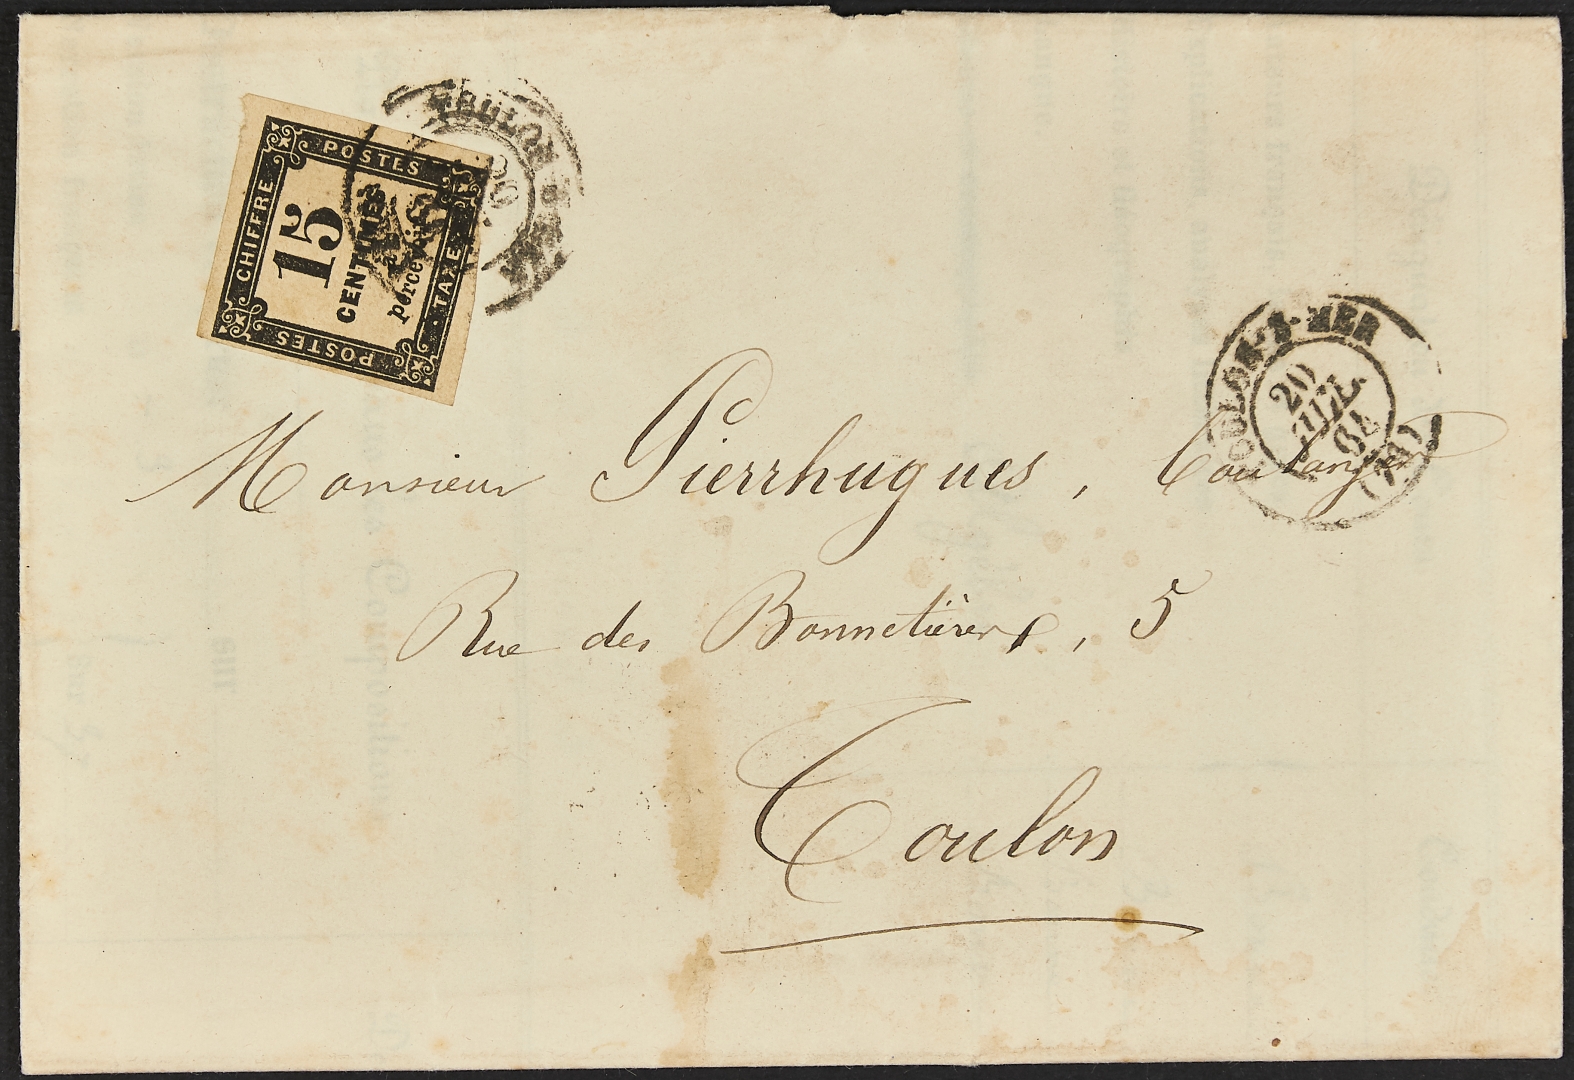 CHIFFRE
POSTES
15
CENTIMES
à
percevoir
TAXE
POSTES
TOULON-S-MER
20
TOULON-S-MER
20
JUIL
64
(78)
Monsieur Pierrhugues, boulanger
Rue des Bonnetières, 5
Toulon